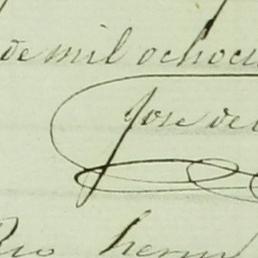 de mil ochoci
Jose de
Rio herm